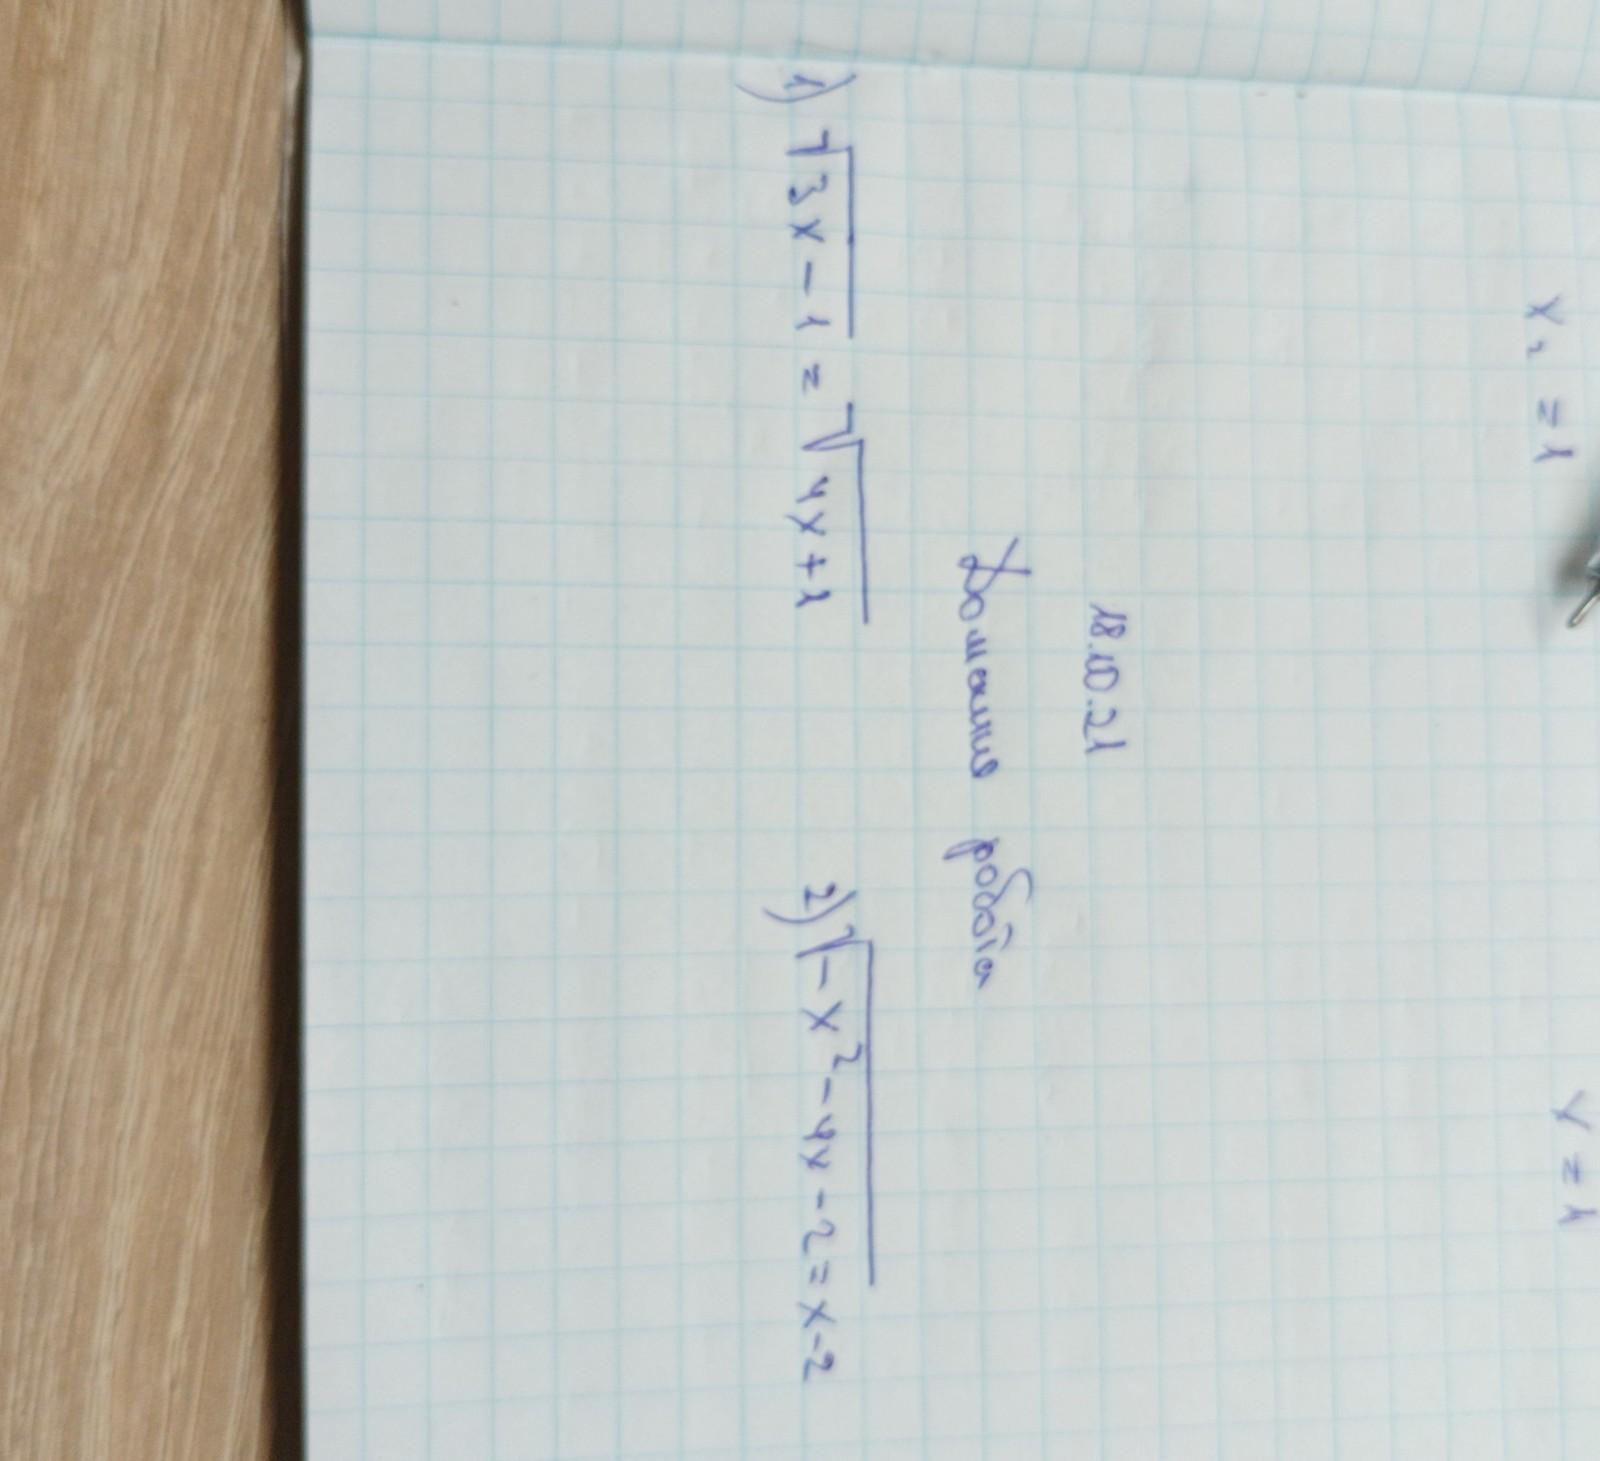 x₂ = 1 y = 1
18.10.21
Домашня робота
1) √3x - 1 = √4x + 1 2) √-x² - 4x - 2 = x - 2